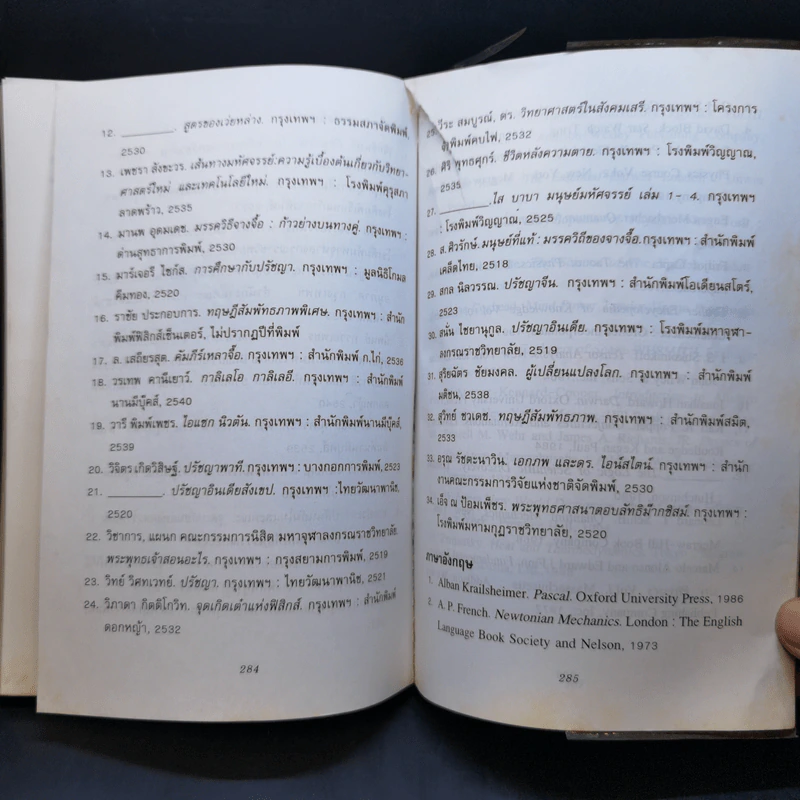 12. ________. สูตรของเว่ยหล่าง. กรุงเทพฯ : ธรรมสภาจัดพิมพ์,
2530
13. เพชรา สังขะวร. เส้นทางมหัศจรรย์:ความรู้เบื้องต้นเกี่ยวกับวิทยา-
ศาสตร์ใหม่ และเทคโนโลยีใหม่. กรุงเทพฯ : โรงพิมพ์คุรุสภา
ลาดพร้าว, 2535
14. มานพ อุดมเดช. มรรควิธีจางจื้อ : ก้าวย่างบนทางคู่. กรุงเทพฯ :
ด่านสุทธาการพิมพ์, 2530
15. มาร์เจอรี ไซกัส. การศึกษากับปรัชญา. กรุงเทพฯ : มูลนิธิโกมล
คีมทอง, 2520
16. ราชัย ประกอบการ. ทฤษฎีสัมพัทธภาพพิเศษ. กรุงเทพฯ : สำนัก
พิมพ์ฟิสิกส์เซ็นเตอร์, ไม่ปรากฏปีที่พิมพ์
17. ล. เสถียรสุต. คัมภีร์เหลาจื้อ. กรุงเทพฯ : สำนักพิมพ์ ก.ไก่, 2536
18. วรเทพ คานีเยาว์. กาลิเลโอ กาลิเลอี. กรุงเทพฯ : สำนักพิมพ์
นานมีบุ๊คส์, 2540
19. วารี พิมพ์เพชร. ไอแซก นิวตัน. กรุงเทพฯ : สำนักพิมพ์นานมีบุ๊คส์,
2539
20. วิจิตร เกิดวิสิษฐ์. ปรัชญาพาที. กรุงเทพฯ : บางกอกการพิมพ์, 2523
21. ________. ปรัชญาอินเดียสังเขป. กรุงเทพฯ :ไทยวัฒนาพานิช,
2520
22. วิชาการ, แผนก คณะกรรมการนิสิต มหาจุฬาลงกรณราชวิทยาลัย.
พระพุทธเจ้าสอนอะไร. กรุงเทพฯ : กรุงสยามการพิมพ์, 2519
23. วิทย์ วิศทเวทย์. ปรัชญา. กรุงเทพฯ : ไทยวัฒนาพานิช, 2521
24. วิภาดา กิตติโกวิท. จุดเกิดเต๋าแห่งฟิสิกส์. กรุงเทพฯ : สำนักพิมพ์
ดอกหญ้า, 2532
284
25. วีระ สมบูรณ์, ดร. วิทยาศาสตร์ในสังคมเสรี. กรุงเทพฯ : โครงการ
จัดพิมพ์คบไฟ, 2532
26. ศิริ พุทธศุกร์. ชีวิตหลังความตาย. กรุงเทพฯ : โรงพิมพ์วิญญาณ,
2535
27. ________.ไส บาบา มนุษย์มหัศจรรย์ เล่ม 1- 4. กรุงเทพฯ
: โรงพิมพ์วิญญาณ, 2525
28. ส. ศิวรักษ์.มนุษย์ที่แท้ : มรรควิถีของจางจื้อ.กรุงเทพฯ : สำนักพิมพ์
เคล็ดไทย, 2518
29. สกล นิลวรรณ. ปรัชญาจีน. กรุงเทพฯ : สำนักพิมพ์โอเดียนสโตร์,
2523
30. สนั่น ไชยานุกูล. ปรัชญาอินเดีย. กรุงเทพฯ : โรงพิมพ์มหาจุฬา-
ลงกรณราชวิทยาลัย, 2519
31. สุริยฉัตร ชัยมงคล. ผู้เปลี่ยนแปลงโลก. กรุงเทพฯ : สำนักพิมพ์
มติชน, 2538
32. สุวิทย์ ชวเดช. ทฤษฎีสัมพัทธภาพ. กรุงเทพฯ : สำนักพิมพ์สมิต,
2533
33. อรุณ รัชตะนาวิน. เอกภพ และดร. ไอน์สไตน์. กรุงเทพฯ : สำนัก
งานคณะกรรมการวิจัยแห่งชาติจัดพิมพ์, 2530
34. เอ็จ ณ ป้อมเพ็ชร. พระพุทธศาสนาตอบลัทธิม้ากซิสม์. กรุงเทพฯ :
โรงพิมพ์มหามกุฏราชวิทยาลัย, 2520
ภาษาอังกฤษ
1. Alban Krailsheimer. Pascal. Oxford University Press, 1986
2. A. P. French. Newtonian Mechanics. London : The English
Language Book Society and Nelson, 1973
285